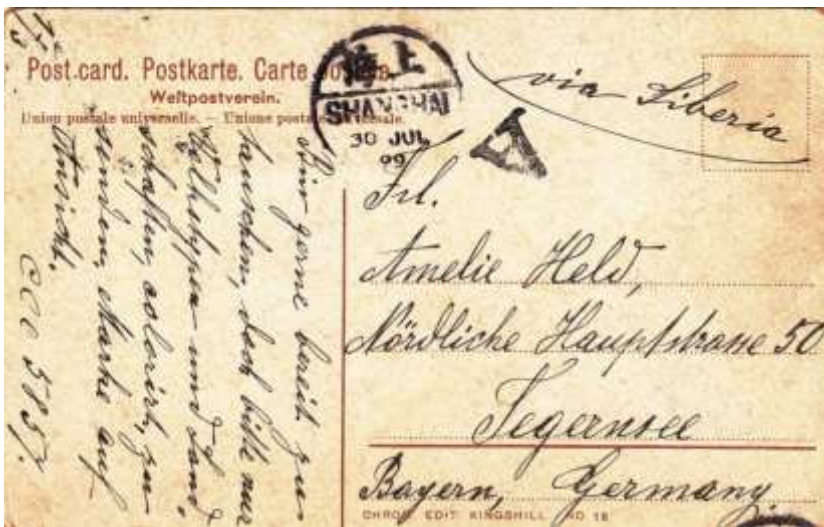 Post.card. Postkarte. Carte postale.
Weltpostverein.
Union postale universelle. — Unione postale universale.
上海
SHANGHAI
30 JUL
09
via Siberia
Frl.
Amelie Held,
Nördliche Hauptstrasse 50
Tegernsee
Bayern, Germany.
Bin gerne bereit zu
tauschen, doch bitte nur
Volkstypen und Land-
schaften, colorirt, zu-
senden, Marke auf
Ansicht.
CCC 585
CHROM. EDIT. KINGSHILL NO 18